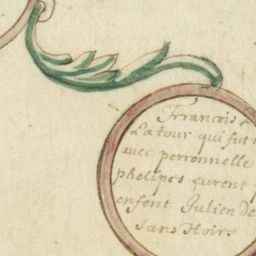 Francois
Latour qui fut
avec perronnelle
phelipes eurent
enfent Julien de
sans Hoirs